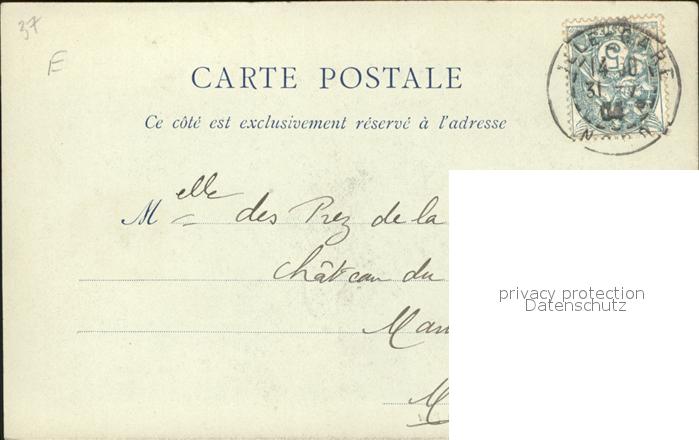 37
E
CARTE POSTALE
Ce côté est exclusivement réservé à l'adresse
LILLE-GARE
31
04
NORD
5
Melle des Prez de la
Château du
privacy protection
Datenschutz